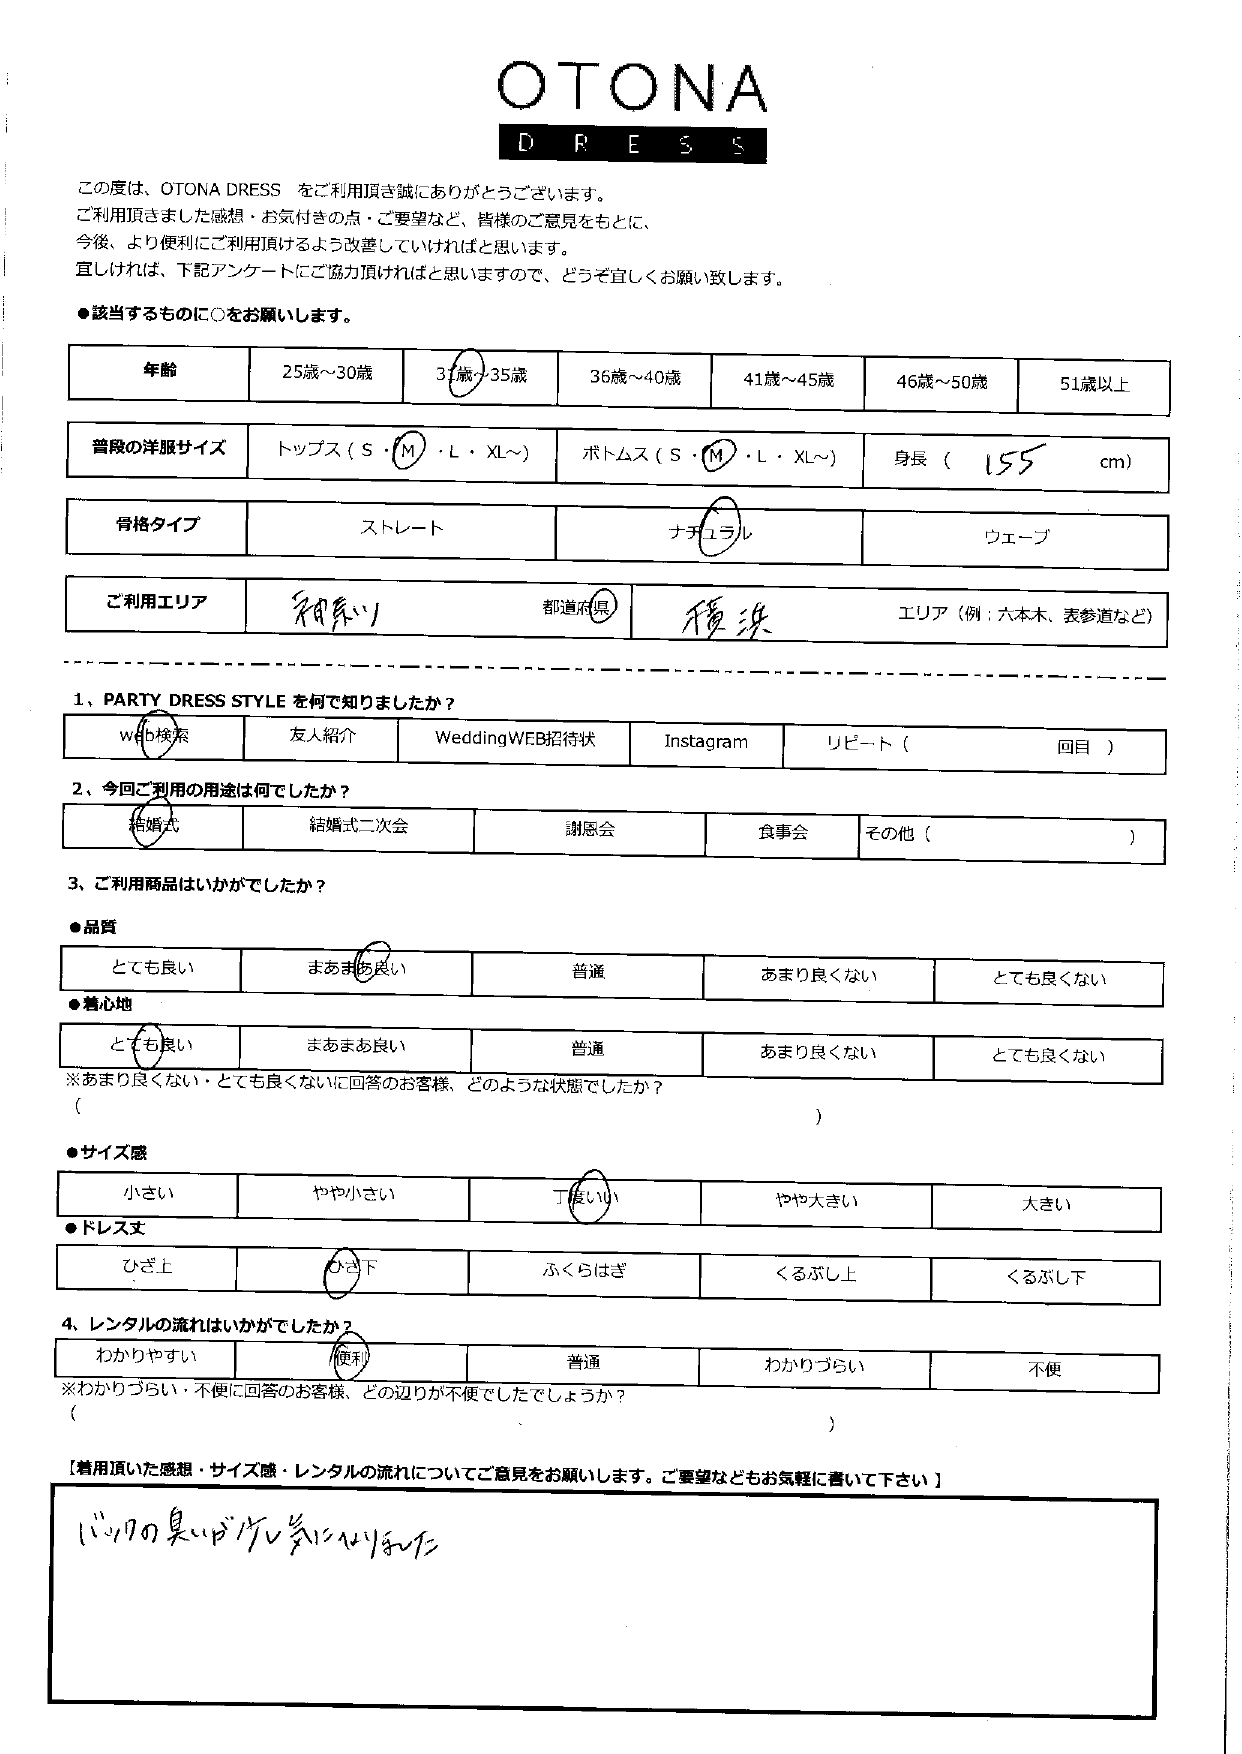 OTONA
DRESS
この度は、OTONA DRESS　をご利用頂き誠にありがとうございます。
ご利用頂きました感想・お気付きの点・ご要望など、皆様のご意見をもとに、
今後、より便利にご利用頂けるよう改善していければと思います。
宜しければ、下記アンケートにご協力頂ければと思いますので、どうぞ宜しくお願い致します。
●該当するものに○をお願いします。
年齢 25歳～30歳 31歳～35歳 36歳～40歳 41歳～45歳 46歳～50歳 51歳以上
普段の洋服サイズ トップス（ S ・ M ・ L ・ XL～） ボトムス（ S ・ M ・ L ・ XL～） 身長（ 155 cm）
骨格タイプ ストレート ナチュラル ウェーブ
ご利用エリア 神奈川 都道府県 横浜 エリア（例：六本木、表参道など）
1、PARTY DRESS STYLE を何で知りましたか？
web検索 友人紹介 WeddingWEB招待状 Instagram リピート（ 回目 ）
2、今回ご利用の用途は何でしたか？
結婚式 結婚式二次会 謝恩会 食事会 その他（ ）
3、ご利用商品はいかがでしたか？
●品質
とても良い まあまあ良い 普通 あまり良くない とても良くない
●着心地
とても良い まあまあ良い 普通 あまり良くない とても良くない
※あまり良くない・とても良くないに回答のお客様、どのような状態でしたか？
（ ）
●サイズ感
小さい やや小さい 丁度いい やや大きい 大きい
●ドレス丈
ひざ上 ひざ下 ふくらはぎ くるぶし上 くるぶし下
4、レンタルの流れはいかがでしたか？
わかりやすい 便利 普通 わかりづらい 不便
※わかりづらい・不便に回答のお客様、どの辺りが不便でしたでしょうか？
（ ）
【着用頂いた感想・サイズ感・レンタルの流れについてご意見をお願いします。ご要望などもお気軽に書いて下さい 】
バックの臭いが少し気になりました